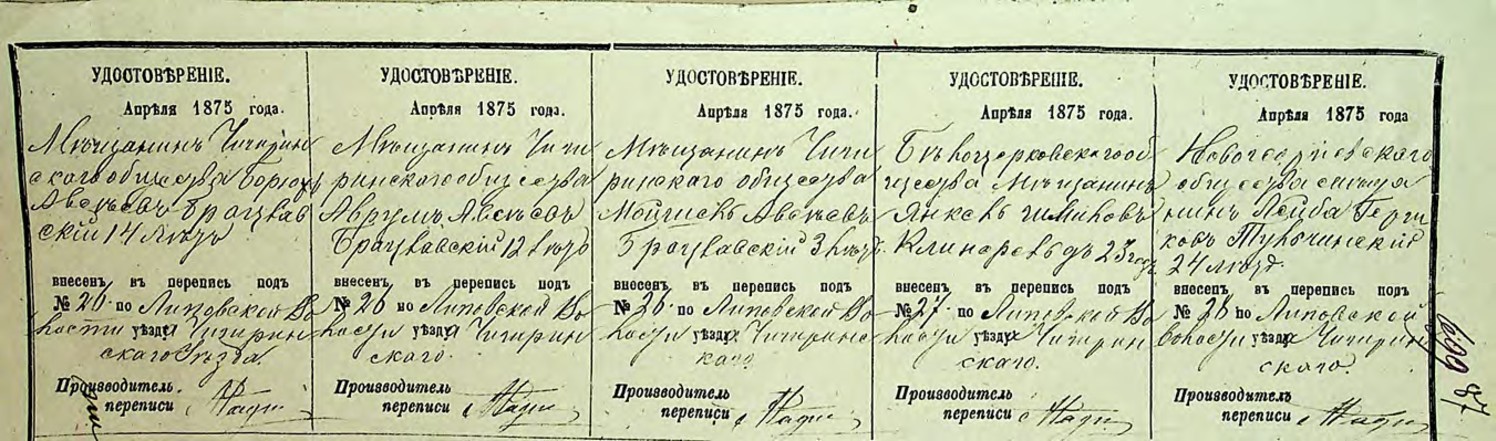 УДОСТОВѢРЕНІЕ.
Апрѣля 1875 года.
Мѣщанинъ Чигирин
скаго общества Борюхъ
Авсѣевъ Брацлав
скій 14 лѣтъ
внесенъ въ перепись подъ
№ 26 по Липовской Во
лости уѣзда Чигирин
скаго Уѣзда.
Производитель
переписи
УДОСТОВѢРЕНІЕ.
Апрѣля 1875 года.
Мѣщанинъ Чиги
ринскаго общества
Аврумъ Авсѣевъ
Брацлавскій 12 лѣтъ
внесенъ въ перепись подъ
№ 26 по Липовской Во
лости уѣзда Чигирин
скаго.
Производитель
переписи
УДОСТОВѢРЕНІЕ.
Апрѣля 1875 года.
Мѣщанинъ Чиги
ринскаго общества
Мойшекъ Авсѣевъ
Брацлавскій 3 лѣтъ
внесенъ въ перепись подъ
№ 26 по Липовской Во
лости уѣзда Чигиринс
каго.
Производитель
переписи
УДОСТОВѢРЕНІЕ.
Апрѣля 1875 года.
Бѣлоцерковскаго об
щества Мѣщанинъ
Янкель
23
внесенъ въ перепись подъ
№ 27 по Липовской Во
лости уѣзда Чигирин
скаго.
Производитель
переписи
УДОСТОВѢРЕНІЕ.
Апрѣля 1875 года
Новогеоргіевскаго
общества
Лейба Герш
ковъ Тульчинскій
24 лѣтъ.
внесенъ въ перепись подъ
№ 28 по Липовской
волости уѣзда Чигирин
скаго.
Производитель
переписи